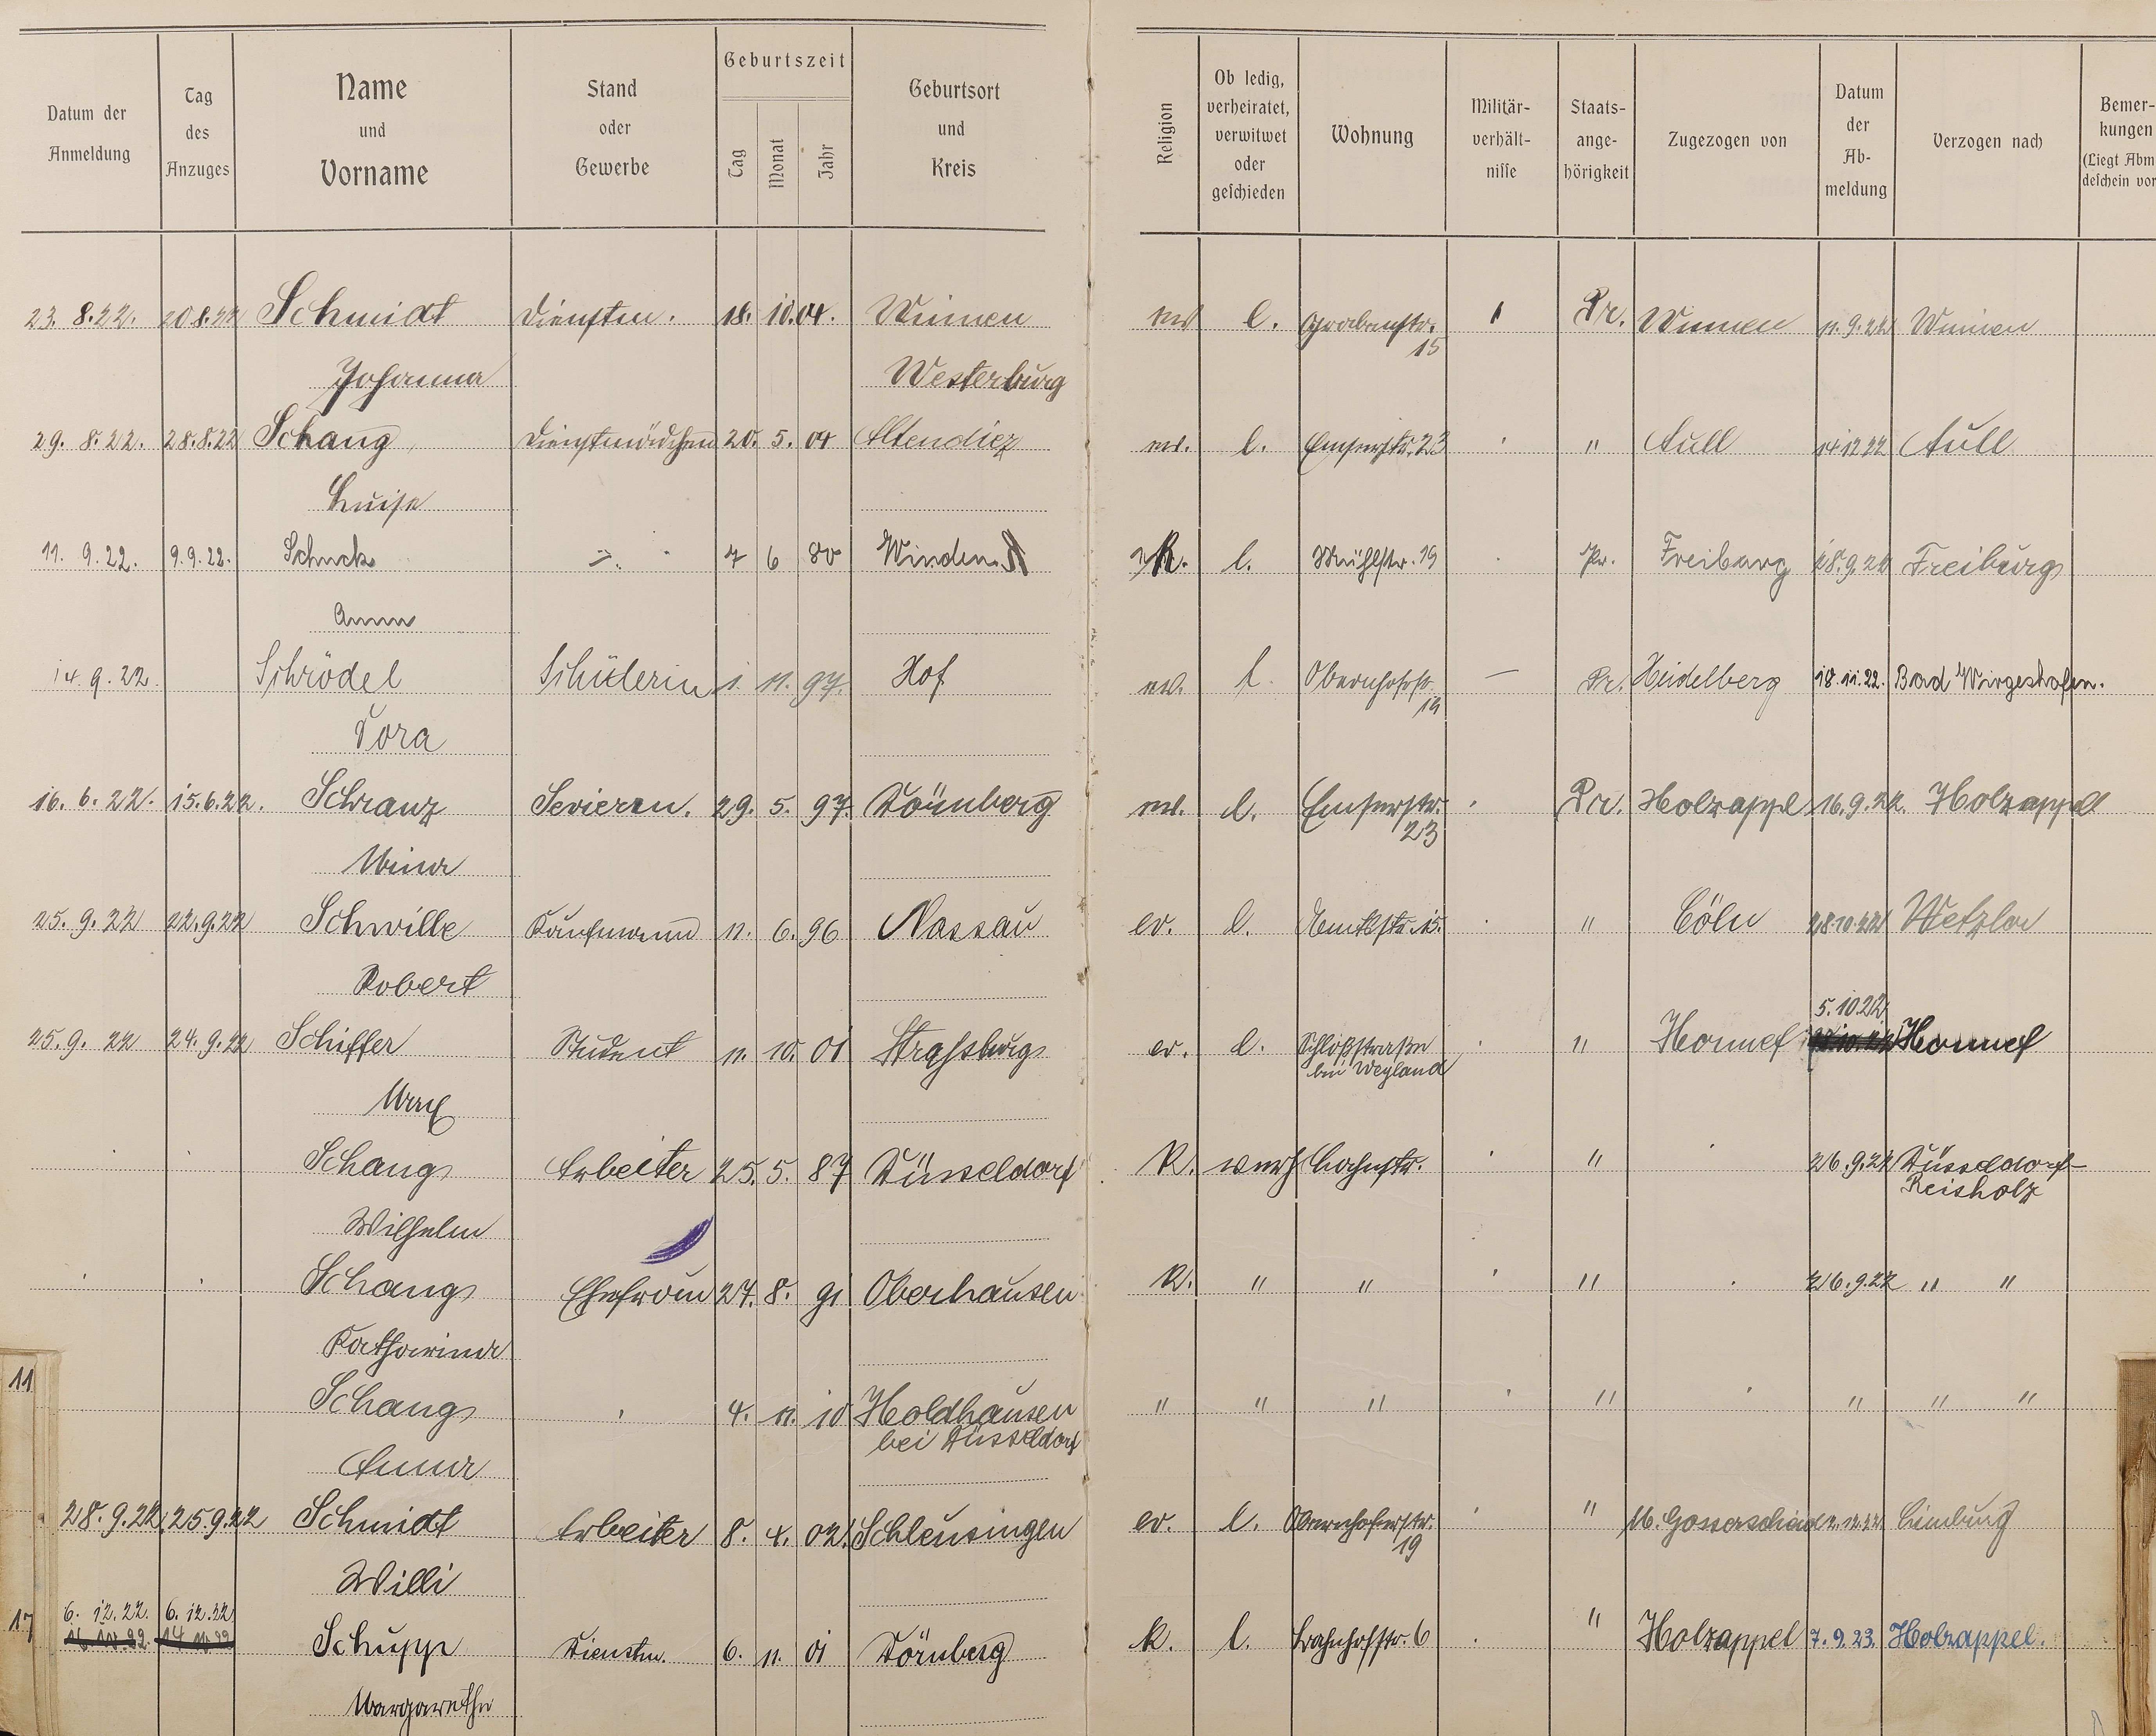 Datum der Anmeldung
Tag des Anzuges
Name und Vorname
Stand oder Gewerbe
Geburtszeit
Tag
Monat
Jahr
Geburtsort und Kreis
Religion
Ob ledig, verheiratet, verwitwet oder geschieden
Wohnung
Militär-verhält-nisse
Staats-ange-hörigkeit
Zugezogen von
Datum der Ab-meldung
Verzogen nach
Bemer-kungen (Liegt Abm deschein vor
23. 8.22. 20 8.22 Schmidt Dienstm. 18. 10. 04. Winnen ev l. Grabenstr. 15 Pr. Winnen 11.9.22 Winnen
Johanna Westerburg
29. 8.22. 28.8.22 Schang Dienstmädchen 20. 5. 04 Altendiez ev. l. Emserstr. 23 " Aull 14 12 22 Aull
Luise
11. 9.22. 9.9.22. Schuck 7 6 80 Winden K. l. Mühlstr. 19 Pr. Freiburg 28.9.22 Freiburg
Anna
14. 9.22. Schrödel Schülerin 1. 11. 97. Hof ev. l. — Pr. Heidelberg 18.11.22. Bad
Dora
16. 6.22. 15.6.22. Schranz 29. 5. 97. Dörnberg ev. l. Emserstr. 23 Pr. Holzappel 16.9.22. Holzappel
Mina
25. 9.22 22.9.22 Schwille Kaufmann 11. 6. 96 Nassau ev. l. Amtstr. 15. " Cöln 28.10.22 Wetzlar
Robert
25. 9. 22 24.9.22 Schiffer Student 11. 10. 01 Straßburg ev. l. Schloßstraße bei Weyland " Honnef 5.10.22 Honnef
Max
Schang Arbeiter 25. 5. 87 Düsseldorf K. verh Lahnstr. " 26.9.22 Düsseldorf-Reisholz
Wilhelm
Schang Ehefrau 27. 8. 91 Oberhausen K. " " " 26.9.22 " "
Katharina
11
Schang 4. 11. 10 Holdhausen bei Düsseldorf " " " " " " "
Anna
28. 9.22. 25.9.22 Schmidt Arbeiter 8. 4. 02. Schleusingen ev. l. Obernhoferstr. 19 " 2.12.22 Limburg
Willi
17
6. 12. 22. 6. 12.22 Schupp Dienstm. 6. 11. 01 Dörnberg K. l. Bahnhofstr. 6 " Holzappel 7.9.23. Holzappel.
Margarethe